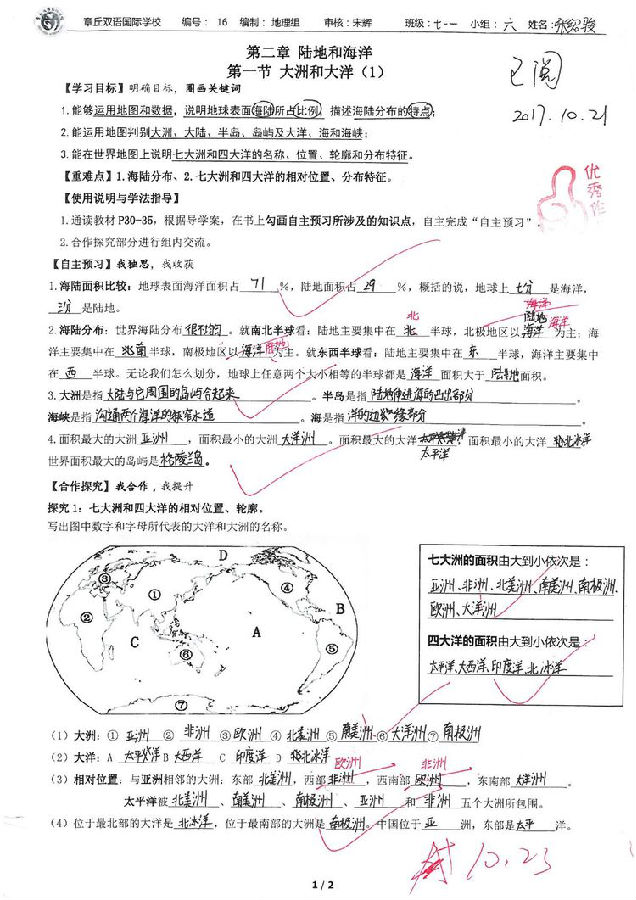 章丘双语国际学校 编号： 16 编制：地理组 审核：朱辉 班级：七一 小组：六 姓名：
第二章 陆地和海洋
第一节 大洲和大洋（1）
已阅
2017.10.21
【学习目标】明确目标，圈画关键词
1.能够运用地图和数据，说明地球表面海陆所占比例，描述海陆分布的特点；
2.能运用地图判别大洲、大陆、半岛、岛屿及大洋、海和海峡；
3.能在世界地图上说明七大洲和四大洋的名称、位置、轮廓和分布特征。
【重难点】1.海陆分布、2.七大洲和四大洋的相对位置、分布特征。
优秀作
【使用说明与学法指导】
1.通读教材P30-35，根据导学案，在书上勾画自主预习所涉及的知识点，自主完成“自主预习”
2.合作探究部分进行组内交流。
【自主预习】我独思，我收获
1.海陆面积比较：地球表面海洋面积占 71 %，陆地面积占 29 %，概括的说，地球上 七分 是海洋，
三分 是陆地。
海洋
北 陆地
2.海陆分布：世界海陆分布 很不均 。就南北半球看：陆地主要集中在 北 半球，北极地区以 海洋 为主；海 海洋
洋主要集中在 南 半球，南极地区以 海洋 陆地 为主。就东西半球看：陆地主要集中在 东 半球，海洋主要集中
在 西 半球。无论我们怎么划分，地球上任意两个大小相等的半球都是 海洋 面积大于 陆地 面积。
3.大洲是指 大陆与它周围的岛屿合起来 。半岛是指 陆地伸进海的
海峡是指 沟通两个海洋的狭窄水道 。海是指 洋的边缘部分
4.面积最大的大洲 亚洲 ，面积最小的大洲 大洋洲 。面积最大的大洋 太平洋 ，面积最小的大洋 北冰洋
世界面积最大的岛屿是 格陵兰岛 。
【合作探究】我合作，我提升
探究1：七大洲和四大洋的相对位置、轮廓，
写出图中数字和字母所代表的大洋和大洲的名称。
七大洲的面积由大到小依次是：
亚洲、非洲、北美洲、南美洲、南极洲、
欧洲、大洋洲
四大洋的面积由大到小依次是：
太平洋、大西洋、印度洋、北冰洋
D
③ ① ④
② B
C A
⑥ ⑤
⑦
（1）大洲：① 亚洲 ② 非洲 ③ 欧洲 ④ 北美洲 ⑤ 南美洲 ⑥ 大洋洲 ⑦ 南极洲
（2）大洋：A 太平洋 B 大西洋 C 印度洋 D 北冰洋
欧洲 非洲
（3）相对位置：与亚洲相邻的大洲：东部 北美洲 ，西部 非洲 ，西南部 欧洲 ，东南部 大洋洲 。
太平洋被 北美洲 、 南美洲 、 南极洲 、 亚洲 和 非洲 五个大洲所包围。
（4）位于最北部的大洋是 北冰洋 ，位于最南部的大洲是 南极洲 。中国位于 亚 洲，东部是 太平 洋。
10.23
1 / 2